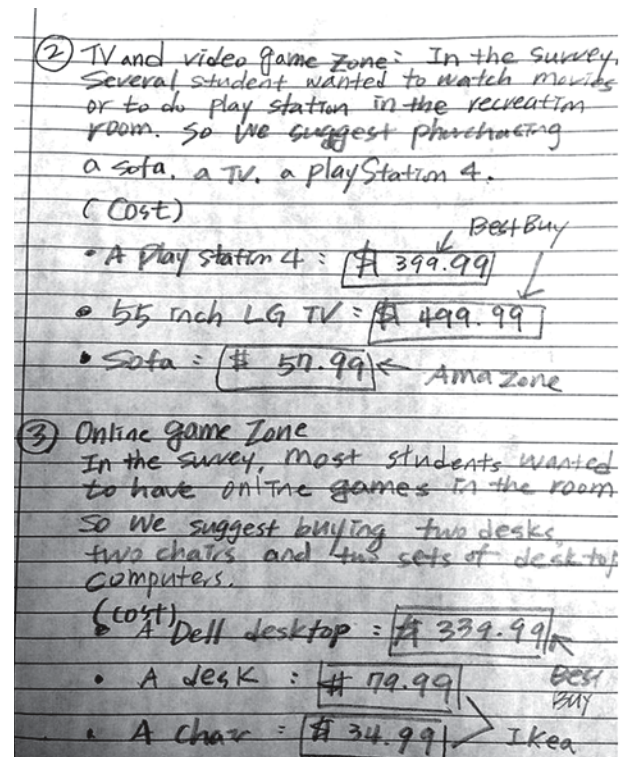 ② TV and video game zone: In the survey,
Several student wanted to watch movies
or to do play station in the recreation
room. So we suggest phurchasing
a sofa, a TV, a playStation 4.
(Cost)
Best Buy
• A Play station 4 : $ 399.99
• 55 inch LG TV : $ 499.99
• Sofa : $ 57.99 ← Ama zone
③ Online game Zone
In the survey, most students wanted
to have online games in the room
So We suggest buying two desks,
two chairs and two sets of desktop
computers.
(cost)
• A Dell desktop : $ 339.99
• A desk : $ 79.99
Best
Buy
• A Chair : $ 34.99
Ikea